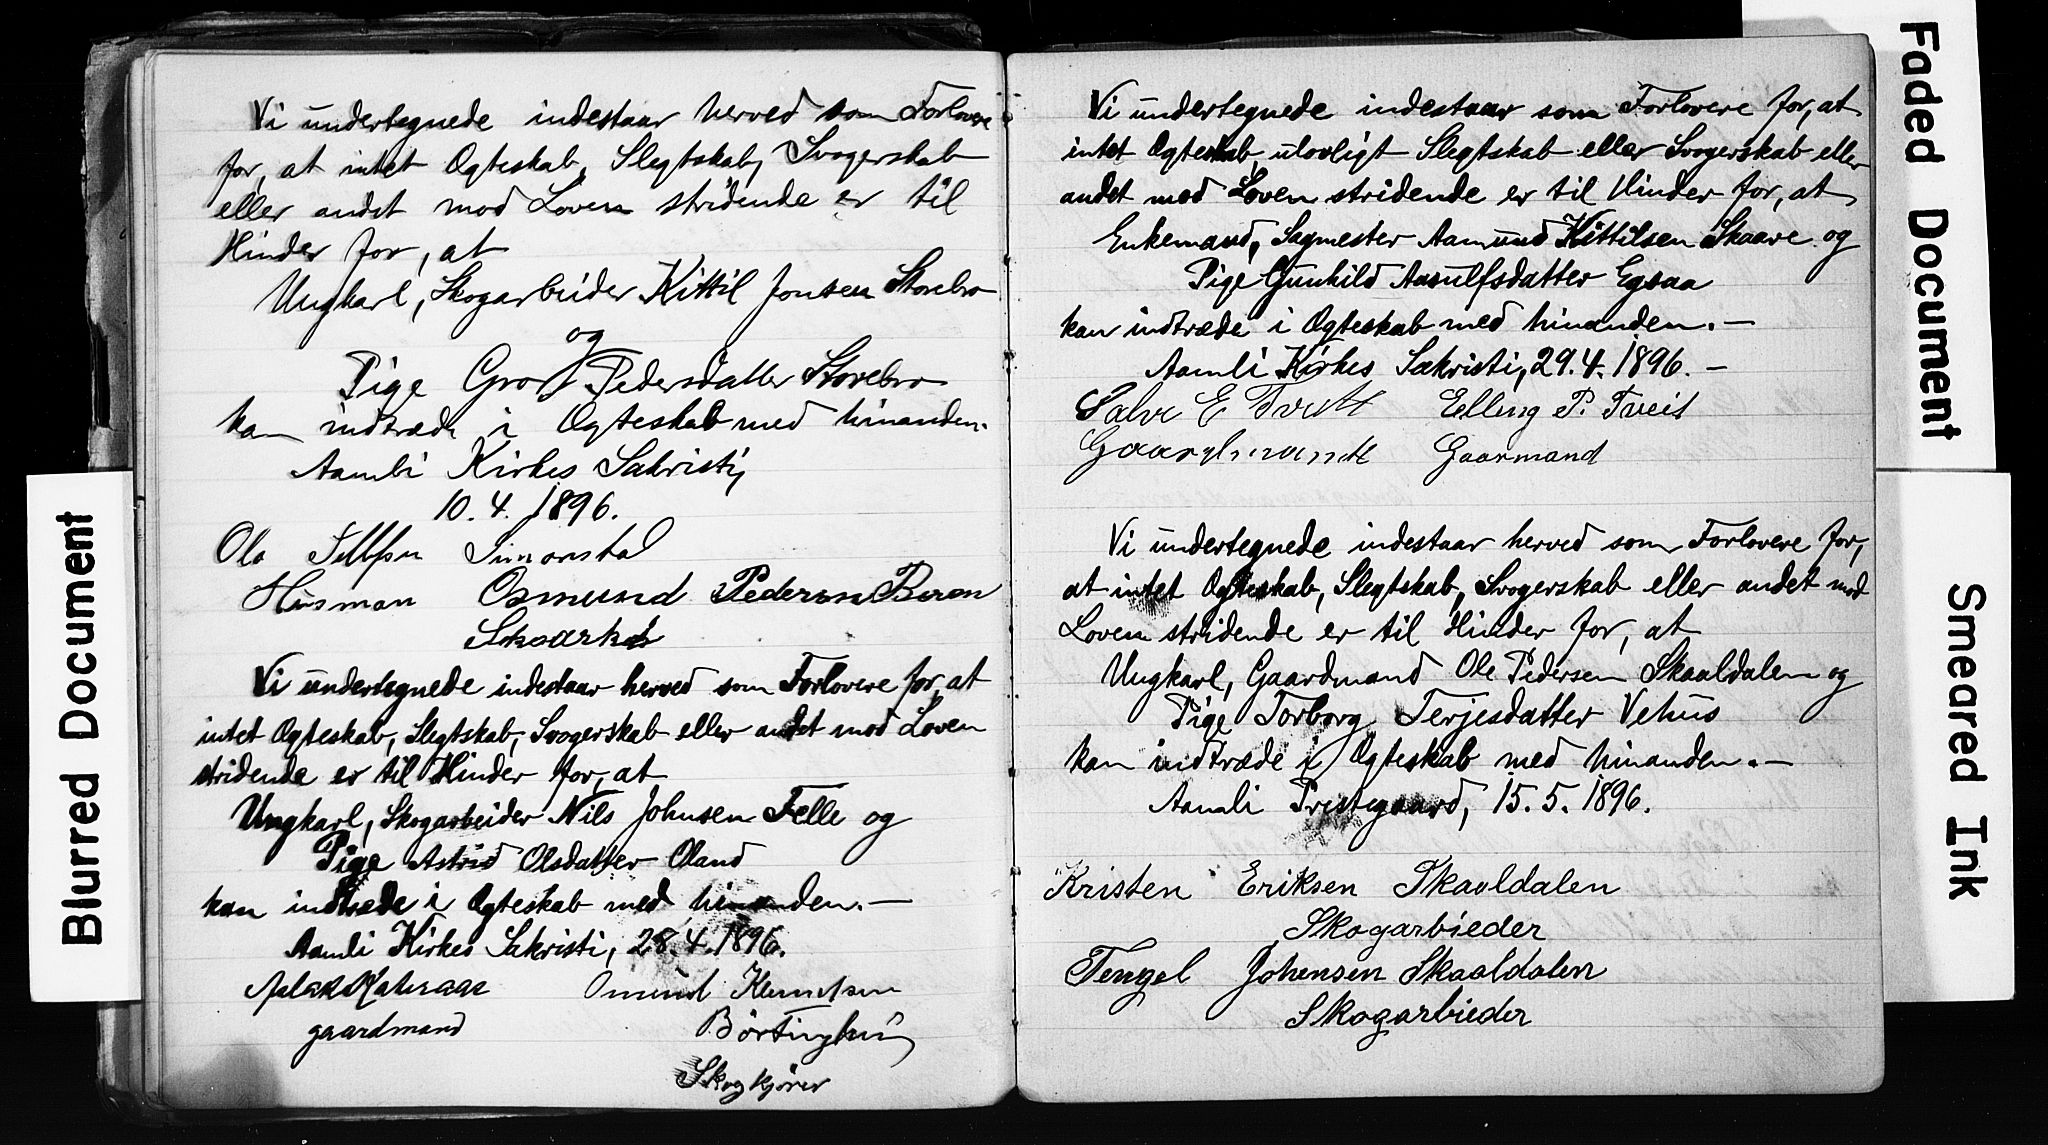 Vi undertegnede indestaar herved som Forlovere
for, at intet Ægteskab, Slegtskab, Svogerskab
eller andet mod Loven stridende er til
Hinder for, at
Ungkarl, Skogarbeider Kittil Jonsen Storebro
og
Pige Gro Pedersdatter Storebro
kan indtræde i Ægteskab med hinanden.
Aamli Kirkes Sakristi,
10. 4. 1896.
Ola Simonstal
Husman Osmund Pederson
Vi undertegnede indestaar herved som Forlovere for, at
intet Ægteskab, Slegtskab, Svogerskab eller andet mod Loven
stridende er til Hinder for, at
Ungkarl, Skogarbeider Nils Johnsen Felle og
Pige Astrid Olsdatter Oland
kan indtræde i Ægteskab med hinanden. —
Aamli Kirkes Sakristi, 28.4.1896.
gaardmand
Skogkjører
Vi undertegnede indestaar som Forlovere for, at
intet Ægteskab, ulovligt Slegtskab eller Svogerskab eller
andet mod Loven stridende er til Hinder for, at
Enkemand, Sagmester Aamund Kittilsen Skaare og
Pige Gunhild Aasulfsdatter Egsaa
kan indtræde i Ægteskab med hinanden. —
Aamli Kirkes Sakristi, 29.4.1896. —
Salve E Tveit Elling P. Tveit
Gaarmand
Vi undertegnede indestaar herved som Forlovere for,
at intet Ægteskab, Slegtskab, Svogerskab eller andet mod
Loven stridende er til Hinder for, at
Ungkarl, Gaardmand Ole Pedersen Skaaldalen og
Pige Torborg Terjesdatter Vehus
kan indtræde i Ægteskab med hinanden. —
Aamli Prestegaard, 15. 5. 1896.
Kristen Eriksen Skaaldalen
Skogarbieder
Tengel Johensen Skaaldalen
Skogarbieder
Blurred Document
Faded Document
Smeared Ink